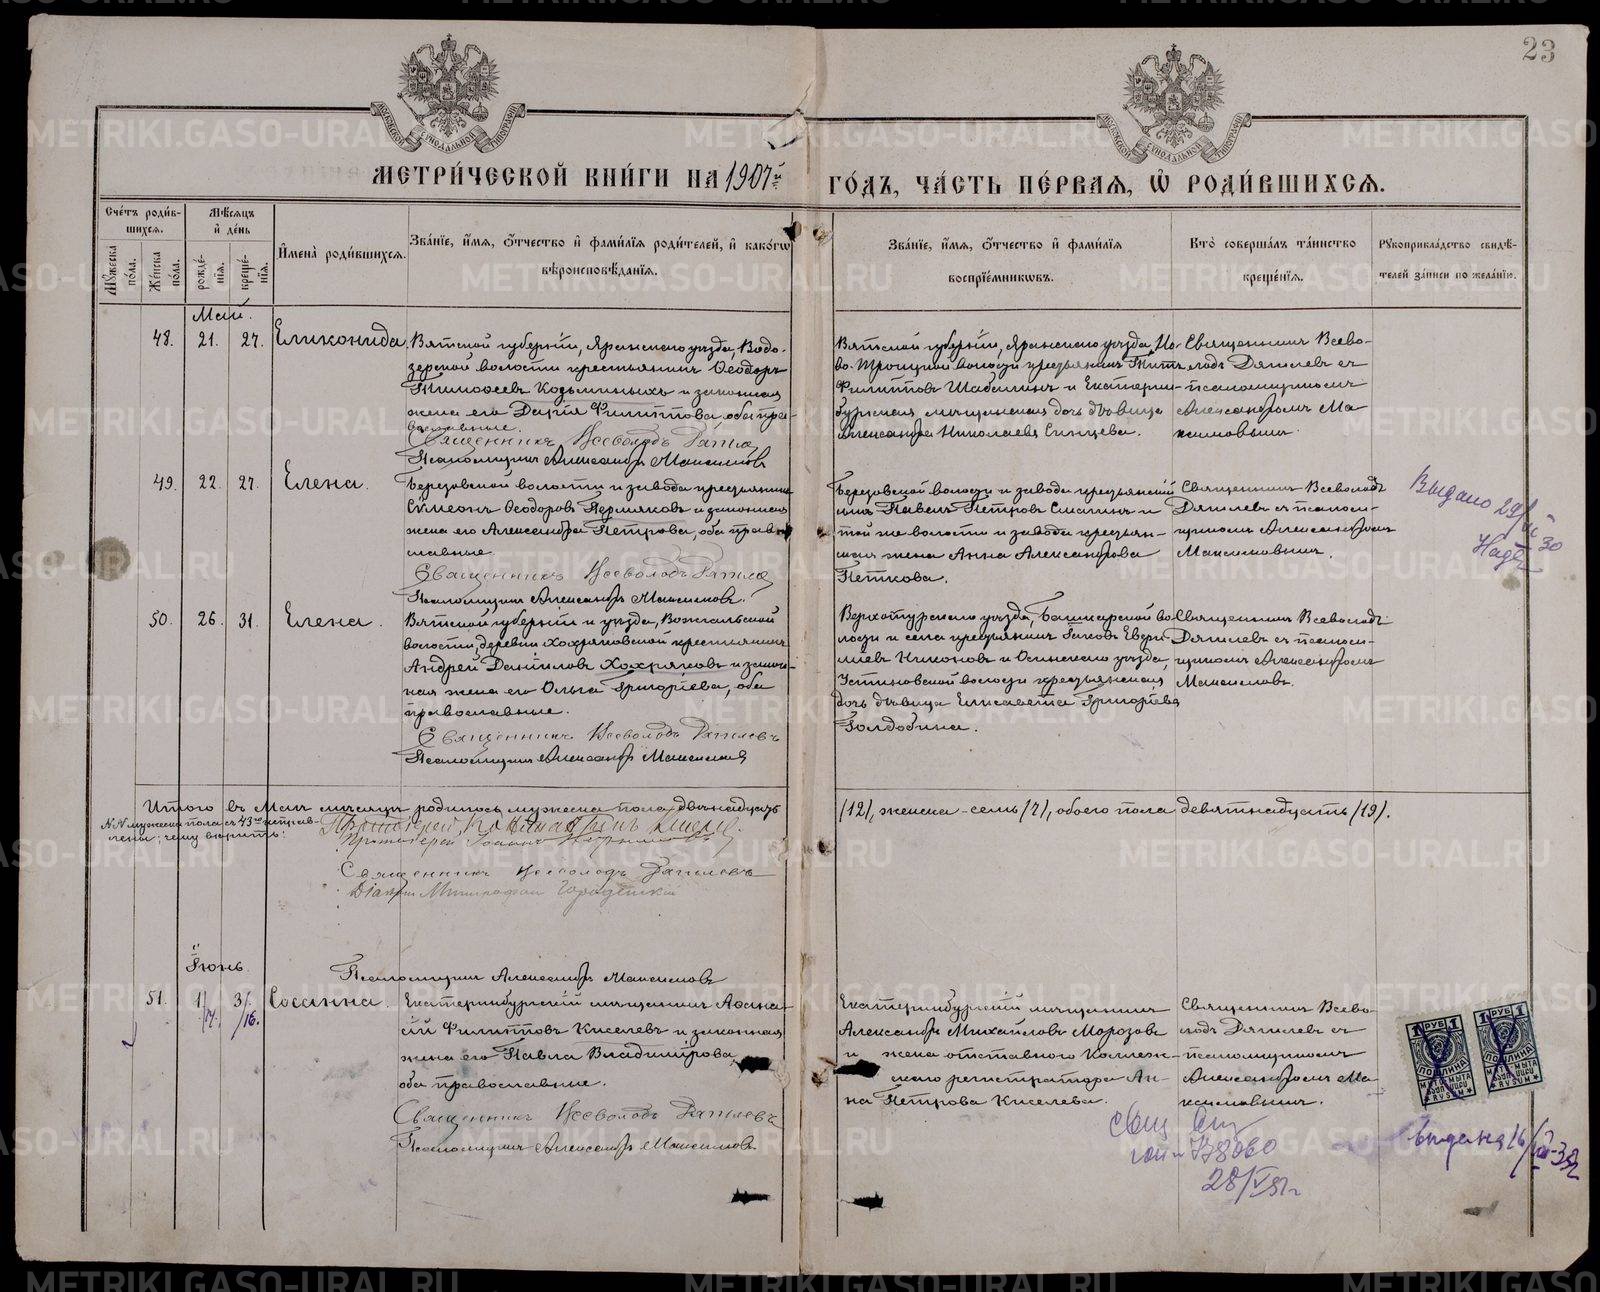 23
МЕТРИ́ЧЕСКОЙ КНИ́ГИ НА 1907й ГО́ДЪ, ЧА́СТЬ ПЕ́РВАЯ, Ѡ РОДИ́ВШИХСЯ.
Сче́тъ роди́в-
шихся.
Мѣ́сяцъ
и҆ де́нь
Му́жеска по́ла.
Же́нска по́ла.
рожде́-
нїя.
креще́-
нїя.
И҆мена̀ роди́вшихся.
Зва́нїе, и҆́мя, о҆́тчество и҆ фами́лїя роди́телей, и҆ како́гѡ
вѣроисповѣ́данїя.
Зва́нїе, и҆́мя, о҆́тчество и҆ фами́лїя
воспрїе́мниковъ.
Кто̀ соверша́лъ та́инство
креще́нїя.
Рукоприкла́дство свидѣ́-
телей за́писи по жела́нїю.
Май.
48. 21. 27. Еликонида.
Вятской губерніи, Яранскаго уѣзда, Водо-
зерской волости крестьянинъ Ѳеодоръ
Тимоѳеевъ Козьминыхъ и законная
жена его Дарія Филиппова, оба пра-
вославные.
Священникъ Всеволодъ
Псаломщикъ Александръ Максимовъ
Вятской губерніи, Яранскаго уѣзда, Но-
во-Троицкой волости крестьянинъ Титъ
Филипповъ Шабалинъ и Екатерин-
бургская мѣщанская дочь дѣвица
Александра Николаева Синцева.
Священникъ Всево-
лодъ Дягилевъ съ
псаломщикомъ
Александромъ Ма-
ксимовымъ.
49. 22. 27. Елена.
Березовской волости и завода крестьянинъ
Сѵмеонъ Ѳеодоровъ Пермяковъ и законная
жена его Александра Петрова, оба право-
славные
Священникъ Всеволодъ
Псаломщикъ Александръ Максимовъ.
Березовской волости и завода крестьянскій
сынъ Павелъ Петровъ и
той же волости и завода крестьян-
ская жена Анна Александрова
Петкова.
Священникъ Всеволодъ
Дягилевъ съ псалом-
щикомъ Александромъ
Максимовымъ.
Выдано 29/VI 30
50. 26. 31. Елена.
Вятской губерніи и уѣзда, Вожгальской
волости, деревни Хохряковской крестьянинъ
Андрей Даніиловъ Хохряковъ и закон-
ная жена его Ольга Григоріева, оба
православные.
Священникъ Всеволодъ Дягилевъ
Псаломщикъ Александръ Максимовъ
Верхотурскаго уѣзда, Башкарской во-
лости и села крестьянинъ Іаковъ Евген-
іевъ Никоновъ и Осинскаго уѣзда,
Устиновской волости крестьянская
дочь дѣвица Елисавета Григоріева
Голдобина.
Священникъ Всеволодъ
Дягилевъ съ псалом-
щикомъ Александромъ
Максимовъ.
Итого въ Маѣ мѣсяцѣ родилось мужеска пола двѣнадцать /12/, женска - семь /7/, обоего пола девятнадцать /19/.
№№ мужеска пола съ 43го исправ-
лены; чему вѣрить:
Протоіерей Іоаннъ
Священникъ Всеволодъ Дягилевъ
Діаконъ Митрофанъ Городецкій
Псаломщикъ Александръ Максимовъ
Іюнь
51. 1/14. 3/16. Сосанна.
Екатеринбургскій мѣщанинъ Аѳана-
сій Филипповъ Киселевъ и законная
жена его Павла Владимірова,
оба православные.
Священникъ Всеволодъ Дягилевъ
Псаломщикъ Александръ Максимовъ.
Екатеринбургскій мѣщанинъ
Александръ Михайловъ Морозовъ
и жена отставного Коллеж-
скаго регистратора Ан-
на Петрова Киселева.
Священникъ Всево-
лодъ Дягилевъ съ
псаломщикомъ
Александромъ Ма-
ксимовымъ.
1 РУБ 1
ПОШЛИНА
1 РУБ 1
ПОШЛИНА
28/V 31 г
METRIKI.GASO-URAL.RU